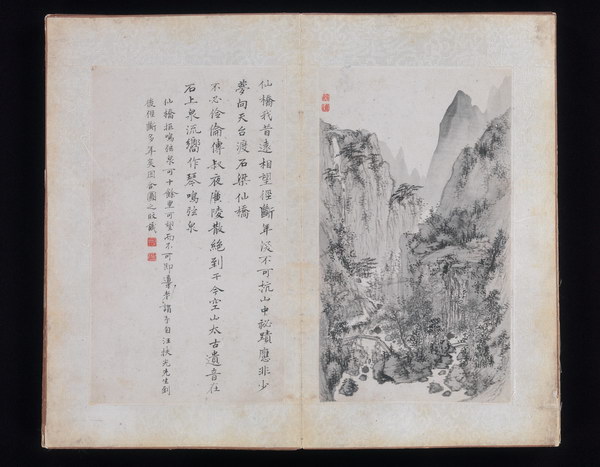 仙橋我昔遠相望徑斷年深不可杭山中祕蹟應非少
夢向天台渡石梁仙橋
不必伶倫傳叔夜廣陵散絕到于今空山太古遺音在
石上泉流響作琴鳴弦泉
仙橋距鳴弦泉可十餘里可望而不可即謂予自汪扶光先生到
後徑斷多年矣因合圖之識